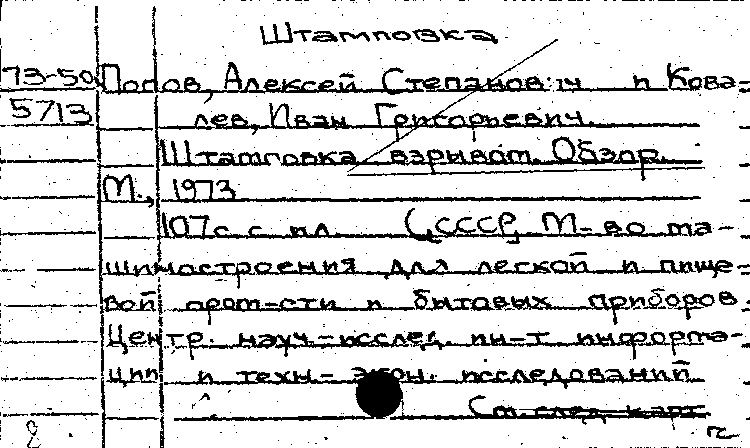 Штамповка
73-50 Попов, Алексей Степанович и Кова-
5713 лев, Иван Григорьевич.
Штамповка взрывом. Обзор.
М., 1973
107с. с ил. (СССР. М-во ма-
шиностроения для легкой и пище-
вой пром-сти и бытовых приборов.
Центр. науч.-исслед. ин-т информа-
ции и техн.-экон. исследований
См. след. карт